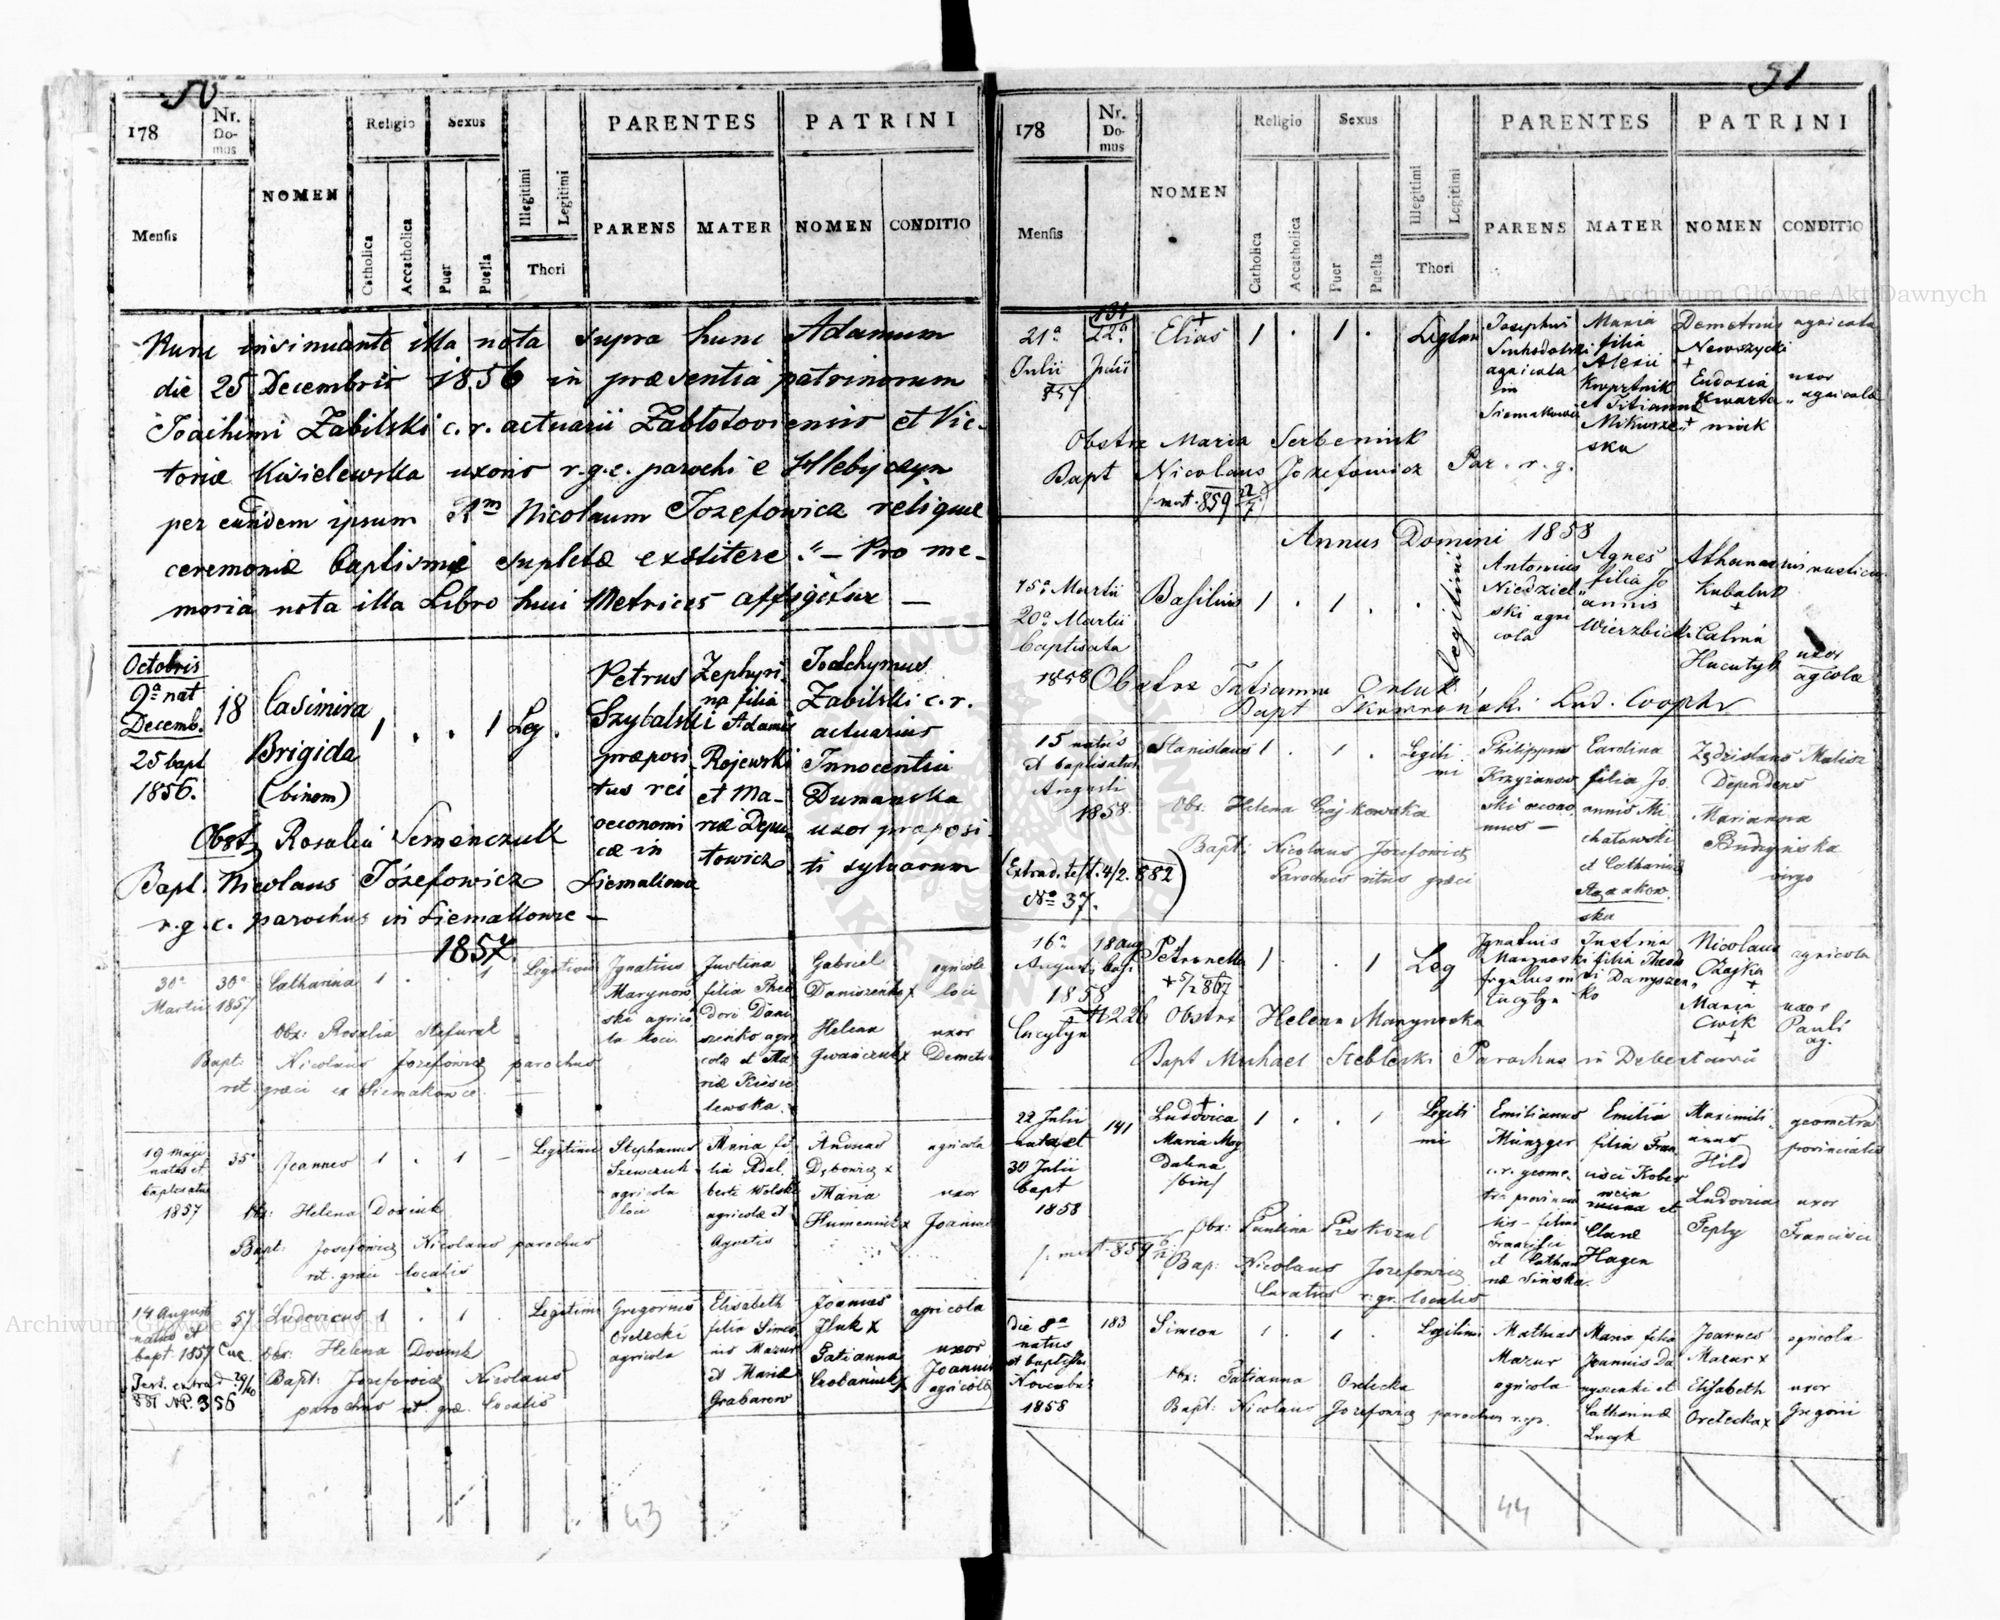 50
178
Nr. Domus
NOMEN
Religio
Sexus
PARENTES
PATRINI
Mensis
Catholica
Accatholica
Puer
Puella
Illegitimi
Legitimi
Thori
PARENS
MATER
NOMEN
CONDITIO
Nunc insinuante illa nota supra hunc Adamum
die 25 Decembris 1856 in præsentia patrinorum
Joachimi Zabilski c. r. actuarii Zablotoviensis et Vic-
toriæ Kisielewska uxoris r. g. c. parochi e Hlebyczyn
per eundem ipsum Rm Nicolaum Jozefowicz reliquæ
ceremoniæ baptismi supletæ exstitere." — Pro me-
moria nota illa Libro huic Metrices affigitur —
Octobris
9a nat
Decemb.
25 bapt
1856.
18
Casimira
Brigida
(binom)
1 . . 1 Leg.
Petrus
Szybalski
præposi
tus rei
oeconomi
cæ in
Siemakowce
Zephyri-
na filia
Adami
Rojewski
et Ma-
riæ Depu-
towicz
Joachymus
Zabilski c. r.
actuarius
Innocentia
Dumanska
uxor præposi
ti sylvarum
Obst. Rosalia Semenczuk
Bapt. Nicolaus Józefowicz
r. g. c. parochus in Siemakowce —
1857
30a
Martii
30a
1857
Catharina 1 . . 1 Legitimi
Ignatius
Marynow
ski agrico
la loci
Justina
filia Theo
dori Dani
szenko agri
colæ et Ma
riæ Kisie
lewska.
Gabriel
Daniszenko x
Helena
agricola
loci
uxor
Demetri
Obs: Rosalia Stefurak
Bapt: Nicolaus Jozefowicz parochus
rit. græci ex Siemakowce
19 Maji
natus et
baptisatus
1857
35a
Joannes 1 . 1 — Legitimi
Stephanus
Szewczuk
agricola
loci
Maria fi
lia Adal
berti Wolski
agricolæ et
Agnetis
Andreas
Dębowicz x
Maria
Humeniuk x
agricola
uxor
Joannis
Obs: Helena Doziuk
Bapt: Josefowicz Nicolaus parochus
rit. græci localis
14 Augusti
natus et
bapt. 1857
Test. extrad 29/10
881 Nr. 356
57
Ludovicus 1 . 1 . Legitimi
Gregorius
Orelecki
agricola
Elisabeth
filia Simeo
nis Mazur
et Mariæ
Grabarow
Joannes
Hluk x
Tatianna
agricola
uxor
Joannis
agricolæ
Obs: Helena
Bapt: Jozefowicz Nicolaus
parochus rit. græ. localis
43
51
178
Nr. Domus
NOMEN
Religio
Sexus
PARENTES
PATRINI
Mensis
Catholica
Accatholica
Puer
Puella
Illegitimi
Legitimi
Thori
PARENS
MATER
NOMEN
CONDITIO
21a
Julii
857
131
22a
Julii
Elias 1 . 1 .
Josephus
agricola
in
Siemakowce
Maria
filia
Alexii
et Titianna
Demetrius
Eudoxia
agricola
uxor
agricolæ
Obstrx Maria Serbeniuk
Bapt Nicolaus Jozefowicz Par. r. g.
/mort. 859 22/7/
Annus Domini 1858
15a Martii
20a Martii
baptisata
1858
Basilius 1 . 1 . .
legitimi
Antonius
Niedziel-
ski agri
cola
Agnes
filia Jo
annis
Wierzbicki
Athanasius
Kubaluk
+
Calina
Hucutyk
rusticus
uxor
agcola
Obstrx Tatianna Orluk
Bapt Skowroński Lud. Cooptr
15 natus
et baptisatus
Augusti
1858
Stanislaus 1 . 1 . Legiti
mi
Philippus
Krzyzanow
ski oecono
mus —
Carolina
filia Jo
annis Mi
chałowski
et Catharinæ
ska
Zdzislaus Malisz
Dependens
Marianna
Budzyńska
virgo
Obs: Helena Gajkowska
Bapt: Nicolaus Jozefowicz
Parochus ritus græci
(Extrad. test. 4/2. 882)
No 37.
16a
Augusti
1858
Łucytyn
18 aug
bap.
Petronella
+ 5/2 867
1 . . 1 Leg
Ignatius
Marynoski
figulus in
Łucytyn
Justina
filia Theodo
ri Danyszen-
ko
Nicolaus
Ożajka
+
Maria
Cwik
+
agricola
uxor
Pauli
ag.
Obstrx Helena Marynoska
Bapt Michael Steblecki Parochus in Debesławce
22 Julii
nata et
30 Julii
bapt
1858
141
Ludovica
Maria Mag
dalena
/bin/
1 . . 1 Legiti
mi
Emilianus
Münzger
c. r. geome-
tra provincia
lis — filius
Francisci
et Catharin
næ Sinska
Emilia
filia Fran
cisci Kober
wein
et
Claræ
Hagen
Maximili-
anus
Hild
Ludovica
Teply
geometra
provincialis
uxor
Francisci
Obs: Paulina Piskozub
/: mort 859
Bap: Nicolaus Jozefowicz
Curatus r. gr. localis
die 8a
natus
et baptisatus
Novembris
1858
183
Simeon 1 . 1 . Legitimi
Mathias
Mazur
agricola
Maria filia
Joannis Da
nyszenki et
Catharinæ
Łucyk
Joannes
Mazur x
Elisabeth
Orelecka x
agricola
uxor
Gregorii
Obs: Tatianna Orelecka
Bapt: Nicolaus Jozefowicz parochus r. gr.
44
Archiwum Główne Akt Dawnych
Archiwum Główne Akt Dawnych